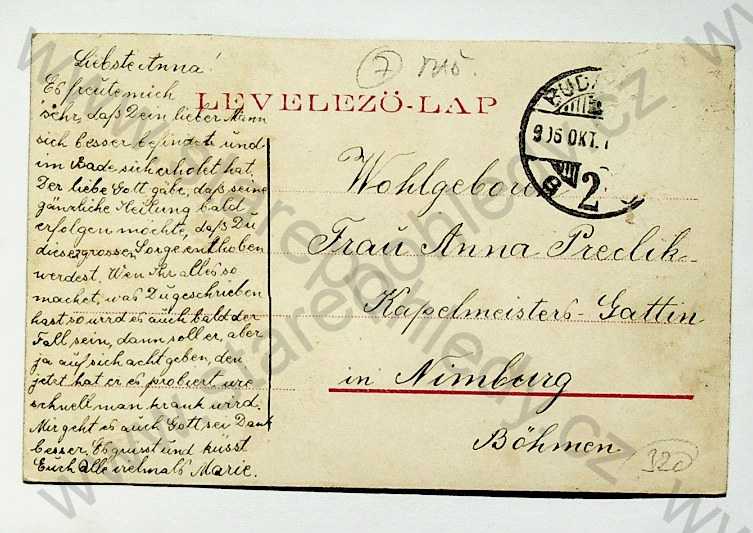 Liebste Anna!
Es freute mich
sehr, daß Dein lieber Mann
sich besser befindet und
im Bade sich erholet hat.
Der liebe Gott gäbe, daß seine
gänzliche Heilung bald
erfolgen möchte, daß Du
dieser grossen Sorge enthoben
werdest. Wen Ihr alles so
machet, was Du geschrieben
hast so wird es auch bald der
Fall sein, dann soll er, aber
ja auf sich acht geben, den
jetzt hat er es probiert wie
schnell man krank wird.
Mir geht es auch Gott sei Dank
besser. Es grüsst und küsst
Euch alle vielmals Marie.
7
LEVELEZŐ-LAP
BUDAP
905 OKT. 1
VIII
B 2
Wohlgeboren
Frau Anna Preclik
Kapelmeisters-Gattin
in Nimburg
Böhmen
320
www.starepohledy.cz